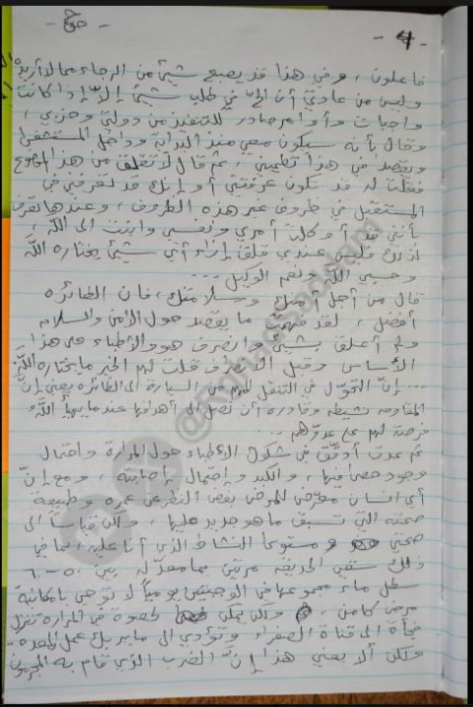 - 4 -
فاعلون، وفي هذا قد يصبح شيئ من الرجاء مما لا أريده
وليس من عادتي أن ألحّ في طلب شيئ إلاّ إذا كانت
واجبات وأوامر صادر للتنفيذ من دولتي وحزبي،
وقال بأنه سيكون معي منذ البداية وداخل المستشفى
ويقصد من هذا تطميني، ثم قال لا تقلق من هذا
فقلت له قد تكون عرفتني أو إنك قد تعرفني في
المستقبل في ظروف غير هذه الظروف، وعندها تعرف
بأنني قد أوكلت أمري ونفسي وابنت الى اللّه،
لذلك فليس عندي قلق إزاء أي شيئ يختاره اللّه
وحسبي اللّه ونعم الوكيل ...
قال من أجل أمنك وسلامتك، فان الطائره
أفضل، لقد فهمت ما يقصد حول الأمن والسلامه
ولم أعلق بشيئ وانصرف هو والأطباء على هذا
الأساس وقبل الانصراف قلت لهم الخير ما يختاره اللّه
... إنّ التحوّل في التنقل من السيارة الى الطائره يعني إنّ
المقاومه نشيطه وقادره أن تصل الى أهدافها عندما يهيأ اللّه
فرصة لهم على عدوّهم ..
ثم عدت أدقّق في شكوك الأطباء حول المرارة واحتمال
وجود حصى فيها، والكبد واحتمال إصابته، ومع إنّ
أي انسان معرّض للمرض بغض النظر عن عمره وطبيعة
صحته التي تسبق ما هو جديد عليها، ولكن قياساً الى
صحتي ومستوى النشاط الذي أنا عليه، بما في
ذلك سقي الحديقه مرتين بما معدّله بين ٥٠ - ٦٠
سطل ماء مجموعها في الوجبتين يومياً لا توحي بامكانية
مرض كامن، ولكن يمكن لحصوة في المراره تنزل
فجأة الى قناة الصفراء وتؤدي الى ما يربك عمل المعده..
ولكن ألا يعني هذا إنّ الضرب الذي قام به المجرمون
@RghadSaddam